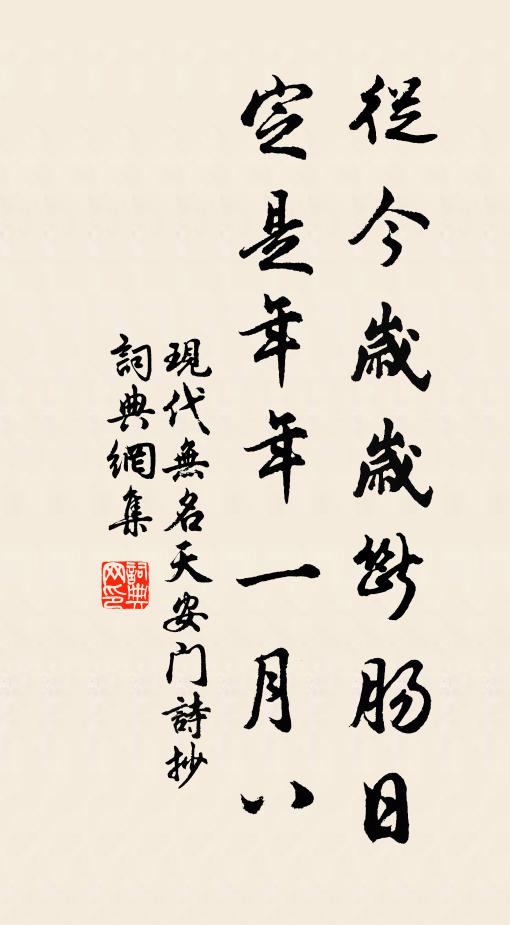 從今歲歲斷肠日
定是年年一月八
現代無名天安门詩抄
詞典網集
詞典网印